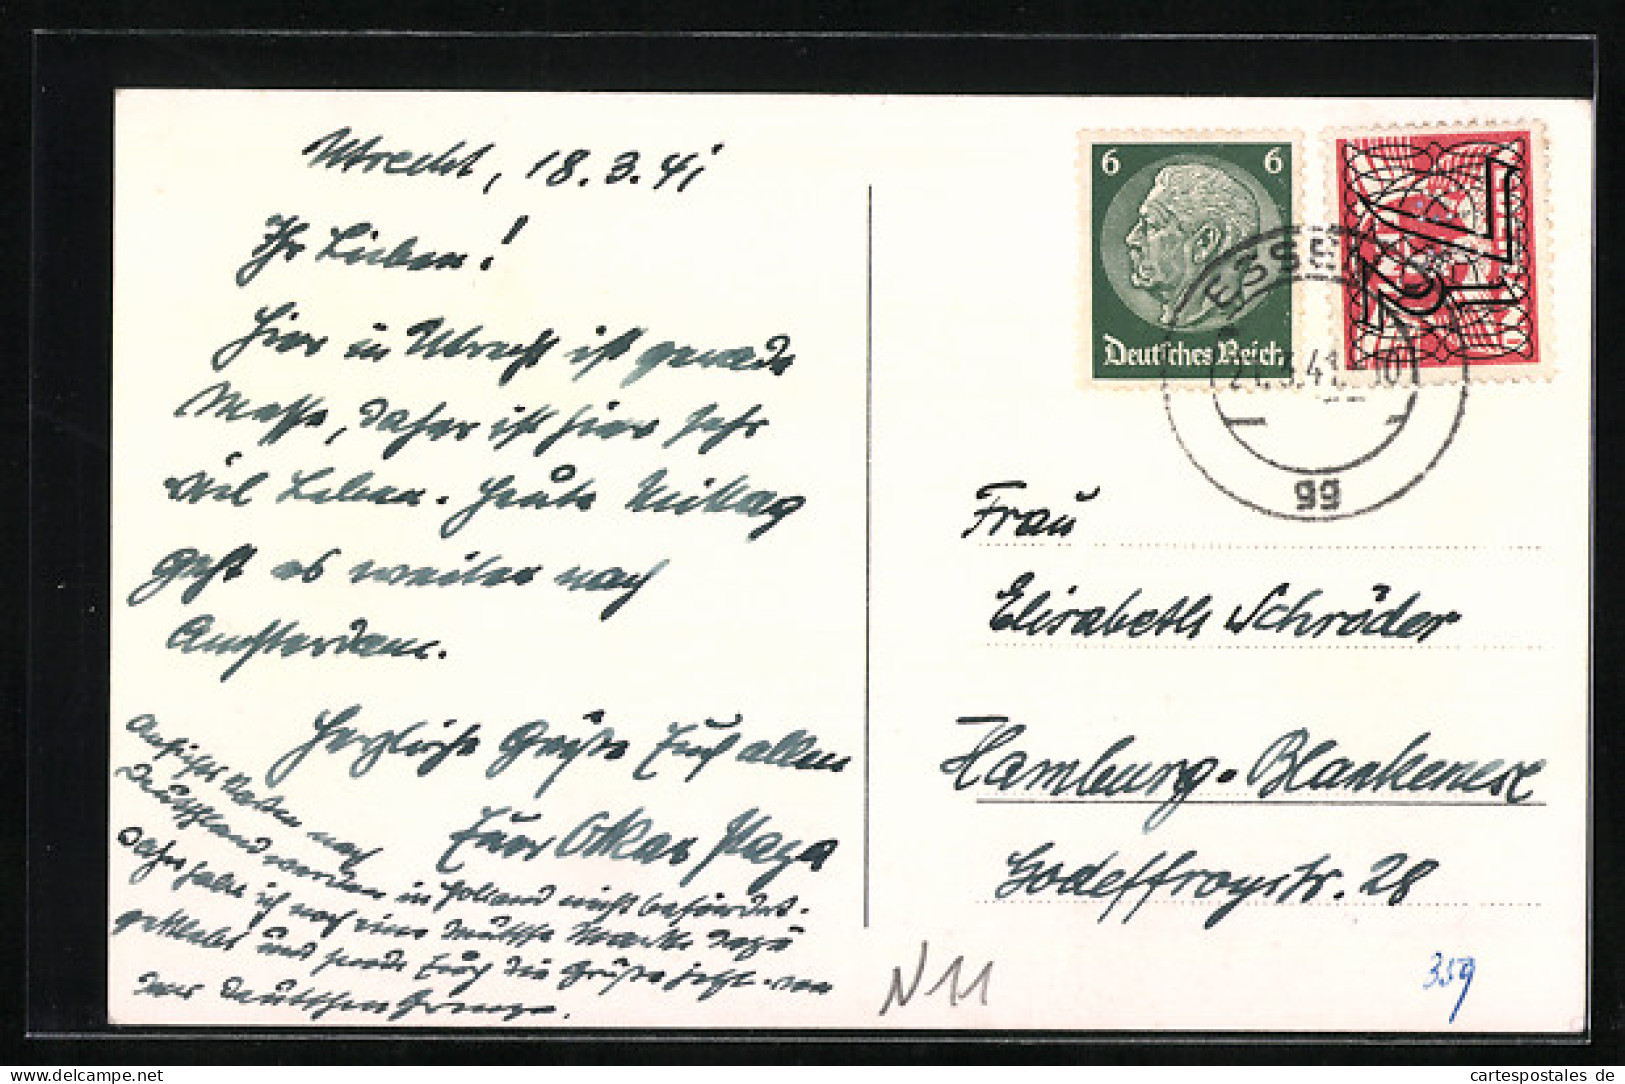 Utrecht, 18.3.41
Ihr Lieben!
Hier in Utrecht ist gerade
Messe, daher ist hier sehr
viel Leben. Heute Mittag
geht es weiter nach
Amsterdam.
Herzliche Grüße Euch allen
Euer Oskar
Ansichtskarten nach
Deutschland werden in Holland nicht befördert.
Daher habe ich noch eine deutsche Marke dazu
geklebt und sende Euch die Grüße jetzt von
der deutschen Grenze.
6 6
Deutsches Reich
7½
ESSEN
21.3.41
gg
Frau
Elisabeth Schröder
Hamburg-Blankenese
Godeffroystr. 28
N 11
359
cartespostales de